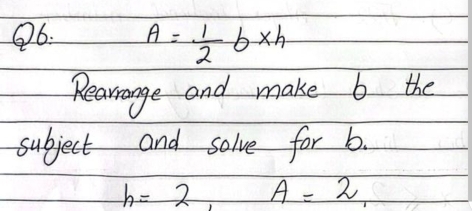 Q6: A = 1/2 b × h
Rearrange and make b the
subject and solve for b.
h = 2, A = 2,